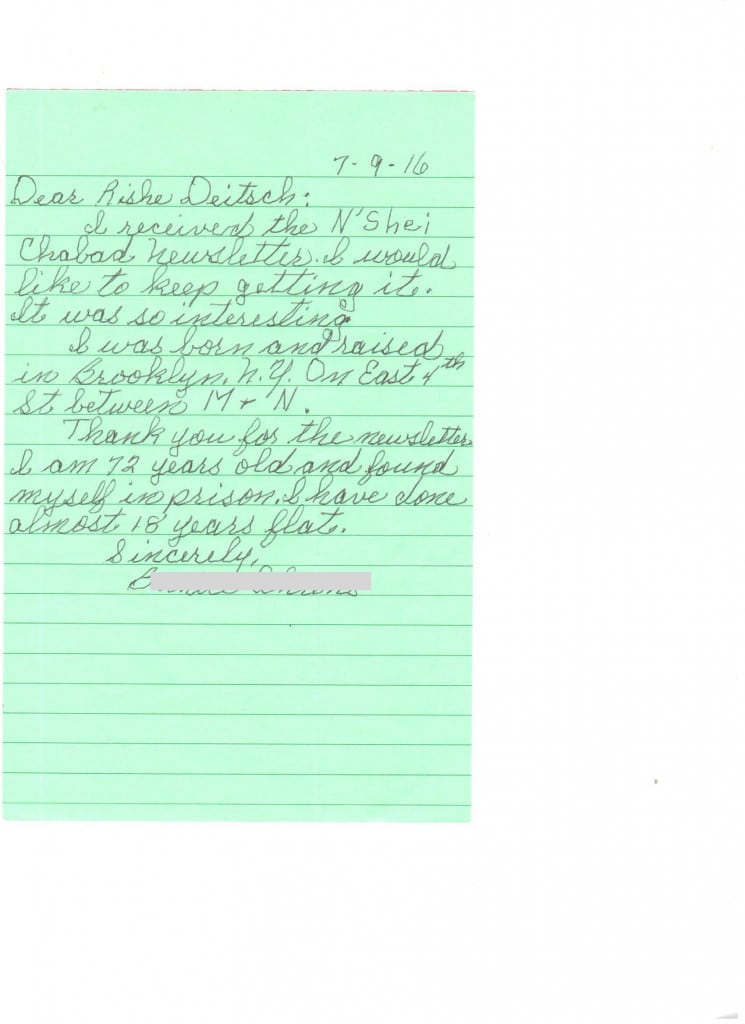 7-9-16
Dear Rishe Deitsch:
I received the N'Shei
Chabad Newsletter. I would
like to keep getting it.
It was so interesting.
I was born and raised
in Brooklyn, N.Y. On East 4th
St between M + N.
Thank you for the newsletter.
I am 72 years old and found
myself in prison. I have done
almost 18 years flat.
Sincerely,